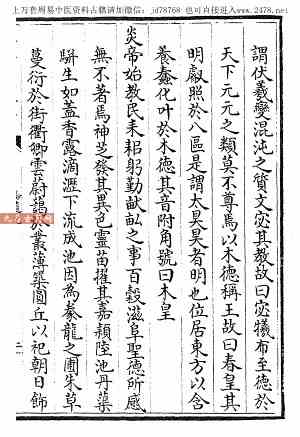 上万套周易中医资料古籍请加微信：jd78768 也可直接进入www.2478.net
謂伏羲變混沌之質文宓其教故曰宓犧布至德於
天下元元之類莫不尊焉以木德稱王故曰春皇其
明叡照於八區是謂太昊昊者明也位居東方以含
養蠢化叶於木德其音附角號曰木皇
炎帝始教民耒耜躬勤畎畝之事百穀滋阜聖德所感
無不著焉神芝發其異色靈苗擢其嘉穎陸池丹蕖
駢生如蓋香露滴瀝下流成池因為豢龍之圃朱草
蔓衍於街衢卿雲蔚藹於叢薄築圓丘以祀朝日飾